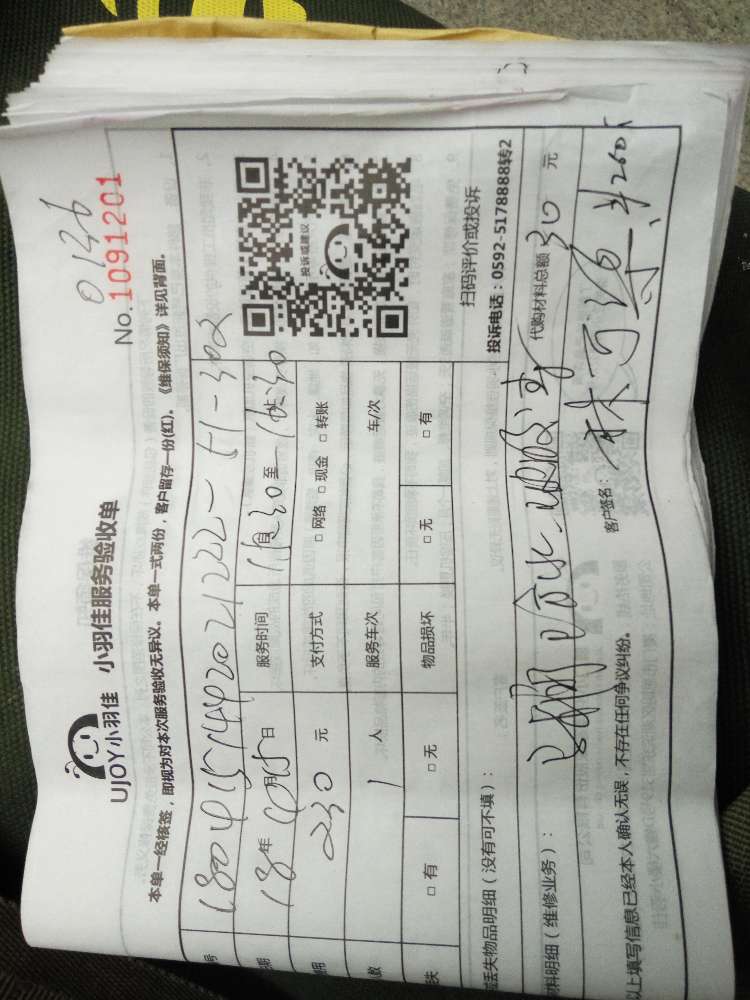 0136
No.1091201
UJOY小羽佳 小羽佳服务验收单
本单一经核签，即视为对本次服务验收无异议。本单一式两份，客户留存一份(红)。《维保须知》详见背面。
号 180415144202021222-51-302
18年4月15日 服务时间 自 30 至 30
230 元 支付方式 □ 网络 □ 现金 □ 转账
数 1 人 服务车次 车/次
失 □ 有 □ 无 物品损坏 □ 无 □ 有
投诉或建议
扫码评价或投诉
投诉电话：0592-5178888转2
丢失物品明细（没有可不填）：
料明细（维修业务）：
代购材料总额 30 元
以上填写信息已经本人确认无误，不存在任何争议纠纷。
客户签名： 林 ¥260